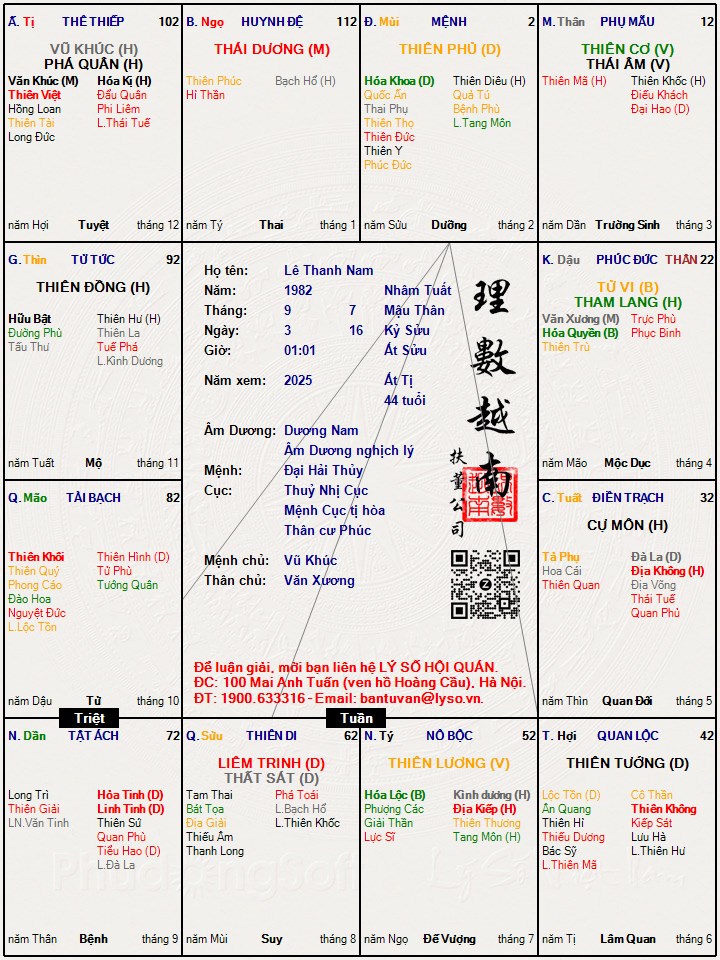 Ấ. Tị THÊ THIẾP 102
VŨ KHÚC (H)
PHÁ QUÂN (H)
Văn Khúc (M) Hóa Kị (H)
Thiên Việt Đẩu Quân
Hồng Loan Phi Liêm
Thiên Tài L.Thái Tuế
Long Đức
năm Hợi Tuyệt tháng 12
B. Ngọ HUYNH ĐỆ 112
THÁI DƯƠNG (M)
Thiên Phúc Bạch Hổ (H)
Hỉ Thần
năm Tý Thai tháng 1
Đ. Mùi MỆNH 2
THIÊN PHỦ (D)
Hóa Khoa (D) Thiên Diêu (H)
Quốc Ấn Quả Tú
Thai Phụ Bệnh Phù
Thiên Thọ L.Tang Môn
Thiên Đức
Thiên Y
Phúc Đức
năm Sửu Dưỡng tháng 2
M. Thân PHỤ MẪU 12
THIÊN CƠ (V)
THÁI ÂM (V)
Thiên Mã (H) Thiên Khốc (H)
Điếu Khách
Đại Hao (D)
năm Dần Trường Sinh tháng 3
G. Thìn TỬ TỨC 92
THIÊN ĐỒNG (H)
Hữu Bật Thiên Hư (H)
Đường Phù Thiên La
Tấu Thư Tuế Phá
L.Kình Dương
năm Tuất Mộ tháng 11
Họ tên: Lê Thanh Nam
Năm: 1982 Nhâm Tuất
Tháng: 9 7 Mậu Thân
Ngày: 3 16 Kỷ Sửu
Giờ: 01:01 Ất Sửu
Năm xem: 2025 Ất Tị
44 tuổi
Âm Dương: Dương Nam
Âm Dương nghịch lý
Mệnh: Đại Hải Thủy
Cục: Thuỷ Nhị Cục
Mệnh Cục tị hòa
Thân cư Phúc
Mệnh chủ: Vũ Khúc
Thân chủ: Văn Xương
理數越南
扶董公司
Để luận giải, mời bạn liên hệ LÝ SỐ HỘI QUÁN.
ĐC: 100 Mai Anh Tuấn (ven hồ Hoàng Cầu), Hà Nội.
ĐT: 1900.633316 - Email: bantuvan@lyso.vn.
K. Dậu PHÚC ĐỨC THÂN 22
TỬ VI (B)
THAM LANG (H)
Văn Xương (M) Trực Phù
Hóa Quyền (B) Phục Binh
Thiên Trù
năm Mão Mộc Dục tháng 4
Q. Mão TÀI BẠCH 82
Thiên Khôi Thiên Hình (D)
Thiên Quý Tử Phù
Phong Cáo Tướng Quân
Đào Hoa
Nguyệt Đức
L.Lộc Tồn
năm Dậu Tử tháng 10
C. Tuất ĐIỀN TRẠCH 32
CỰ MÔN (H)
Tả Phụ Đà La (D)
Hoa Cái Địa Không (H)
Thiên Quan Địa Võng
Thái Tuế
Quan Phủ
năm Thìn Quan Đới tháng 5
Triệt
Tuần
N. Dần TẬT ÁCH 72
Long Trì Hỏa Tinh (D)
Thiên Giải Linh Tinh (D)
LN.Văn Tinh Thiên Sứ
Quan Phù
Tiểu Hao (D)
L.Đà La
năm Thân Bệnh tháng 9
Q. Sửu THIÊN DI 62
LIÊM TRINH (D)
THẤT SÁT (D)
Tam Thai Phá Toái
Bát Tọa L.Bạch Hổ
Địa Giải L.Thiên Khốc
Thiếu Âm
Thanh Long
năm Mùi Suy tháng 8
N. Tý NÔ BỘC 52
THIÊN LƯƠNG (V)
Hóa Lộc (B) Kình dương (H)
Phượng Các Địa Kiếp (H)
Giải Thần Thiên Thương
Lực Sĩ Tang Môn (H)
năm Ngọ Đế Vượng tháng 7
T. Hợi QUAN LỘC 42
THIÊN TƯỚNG (D)
Lộc Tồn (D) Cô Thần
Ân Quang Thiên Không
Thiên Hỉ Kiếp Sát
Thiếu Dương Lưu Hà
Bác Sỹ L.Thiên Hư
L.Thiên Mã
năm Tị Lâm Quan tháng 6